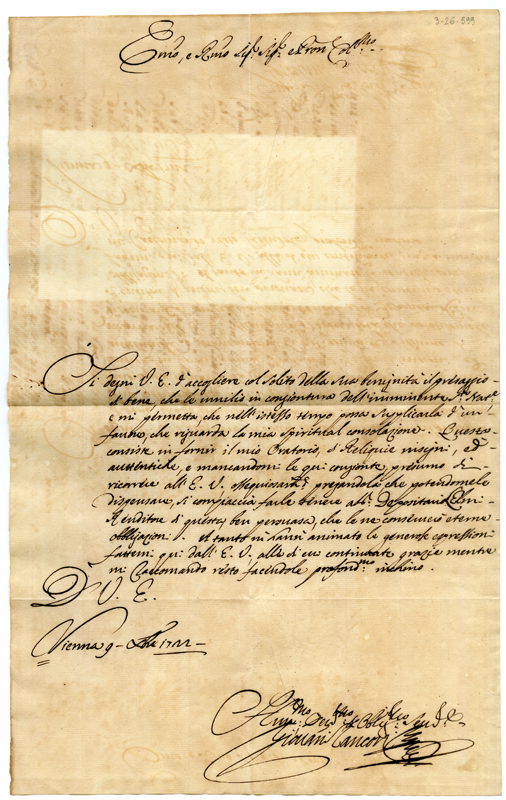 3-26-599
Emo, e Rmo Sig.r Sig.r e Pron Col.mo
Si degni V. E. d'accogliere col solito della sua benignità il presaggio
di bene, che le umilio in congiontura dell'imminente S. Nat.e
e mi permetta che nell'istesso tempo possa supplicarla d'un
favore, che riguarda la mia spiritual consolazione. Questo
consiste in fornir il mio Oratorio, di Reliquie insigni, ed
autentiche, e mancandomi le qui congionte, presumo di
ricorrere all'E. V. pregandola che potendomele
dispensare, si compiaccia farle tenere al Depositario
di questa, ben persuasa, che le ne conserverò eterne
obbligazioni. A tanto m'hanno animato le generose espressioni
fattemi qui dall'E. V. alle di cui continuate grazie mentre
mi raccomando resto facendole profond.mo inchino.
D' V. E.
Vienna 9 Xbre 1722
Giovanni